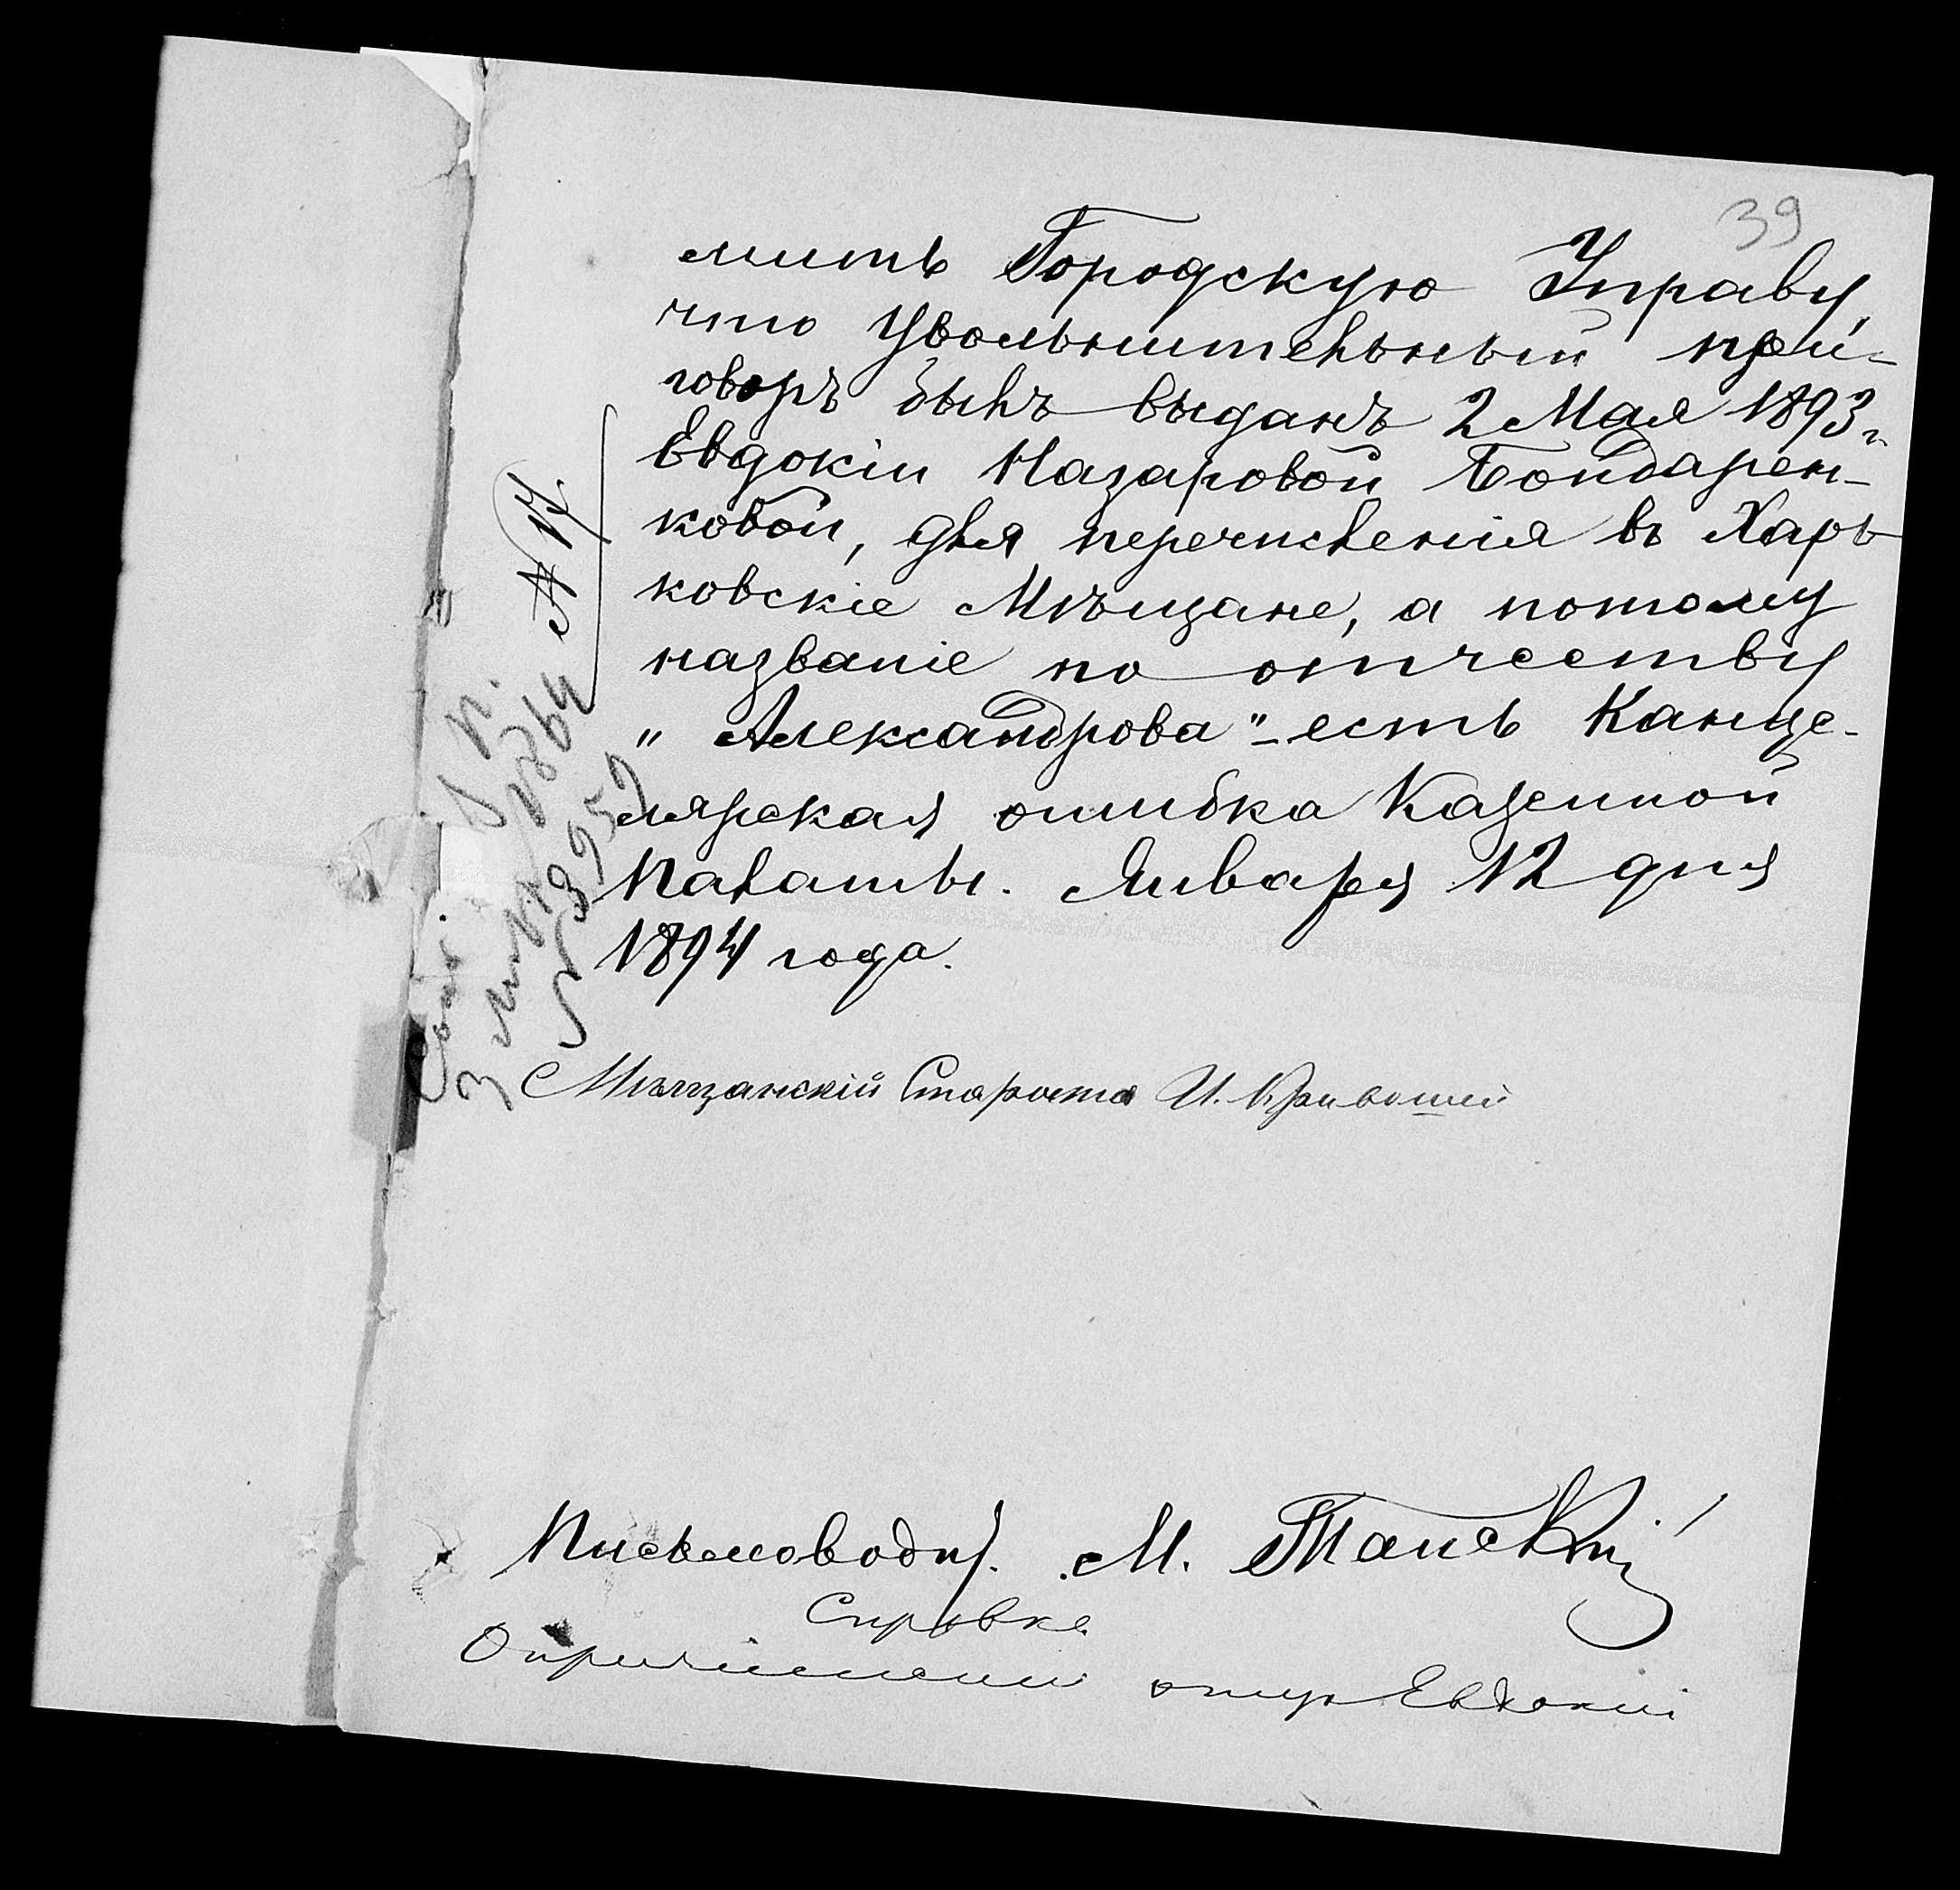 39
мить Городскую Управу,
что увольнительный при-
говоръ былъ выданъ 2 Мая 1893 г.
Евдокіи Назаровой Бондарен-
ковой, для перечисленія въ Харь-
ковскіе Мѣщане, а потому
названіе по отчеству
„Александрова"- есть Канце-
лярская ошибка Казенной
Палаты. Января 12 дня
1894 года.
Мѣщанскій Староста И. Кривошей
Письмоводит. М. Танскій
Справка
О причисленіи Евдокіи